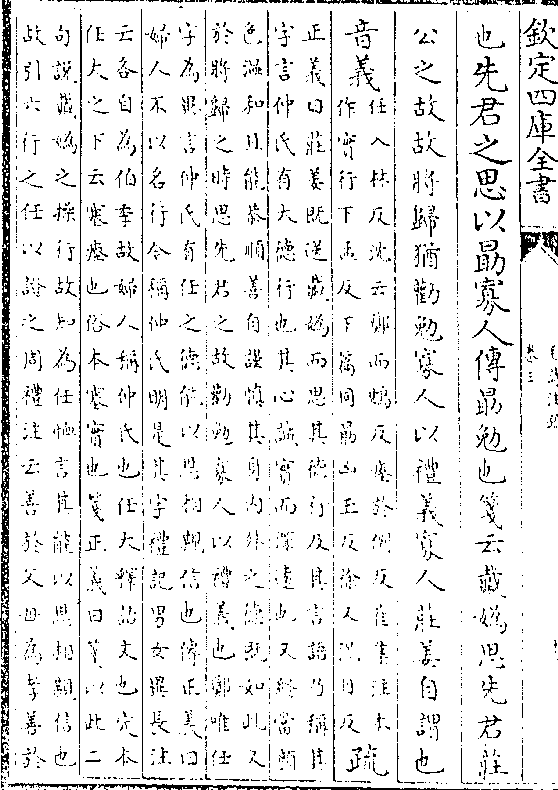 欽定四庫全書
卷三
也先君之思以勗寡人傳勗勉也箋云戴媯思先君莊
公之故故將歸猶勸勉寡人以禮義寡人莊姜自謂也
音義
任入林反沈云鄭而鴆反塞於例反崔集注本
作實行下孟反下篇同勗凶玉反徐又況目反
疏
正義曰莊姜既送戴媯而思其德行及其言語乃稱其
字言仲氏有大德行也其心誠實而深遠也又終當顏
色溫和且能恭順善自謹慎其身內外之德既如此又
於將歸之時思先君之故勸勉寡人以禮義也鄭唯任
字為異言仲氏有任之德能以恩相親信也傳正義曰
婦人不以名行今稱仲氏明是其字禮記男女異長注
云各自為伯季故婦人稱仲氏也任大釋詁文也定本
任大之下云塞瘞也俗本塞實也箋正義曰箋以此二
句說戴媯之操行故知為任恤言其能以恩相親信也
故引六行之任以證之周禮注云善於父母為孝善於